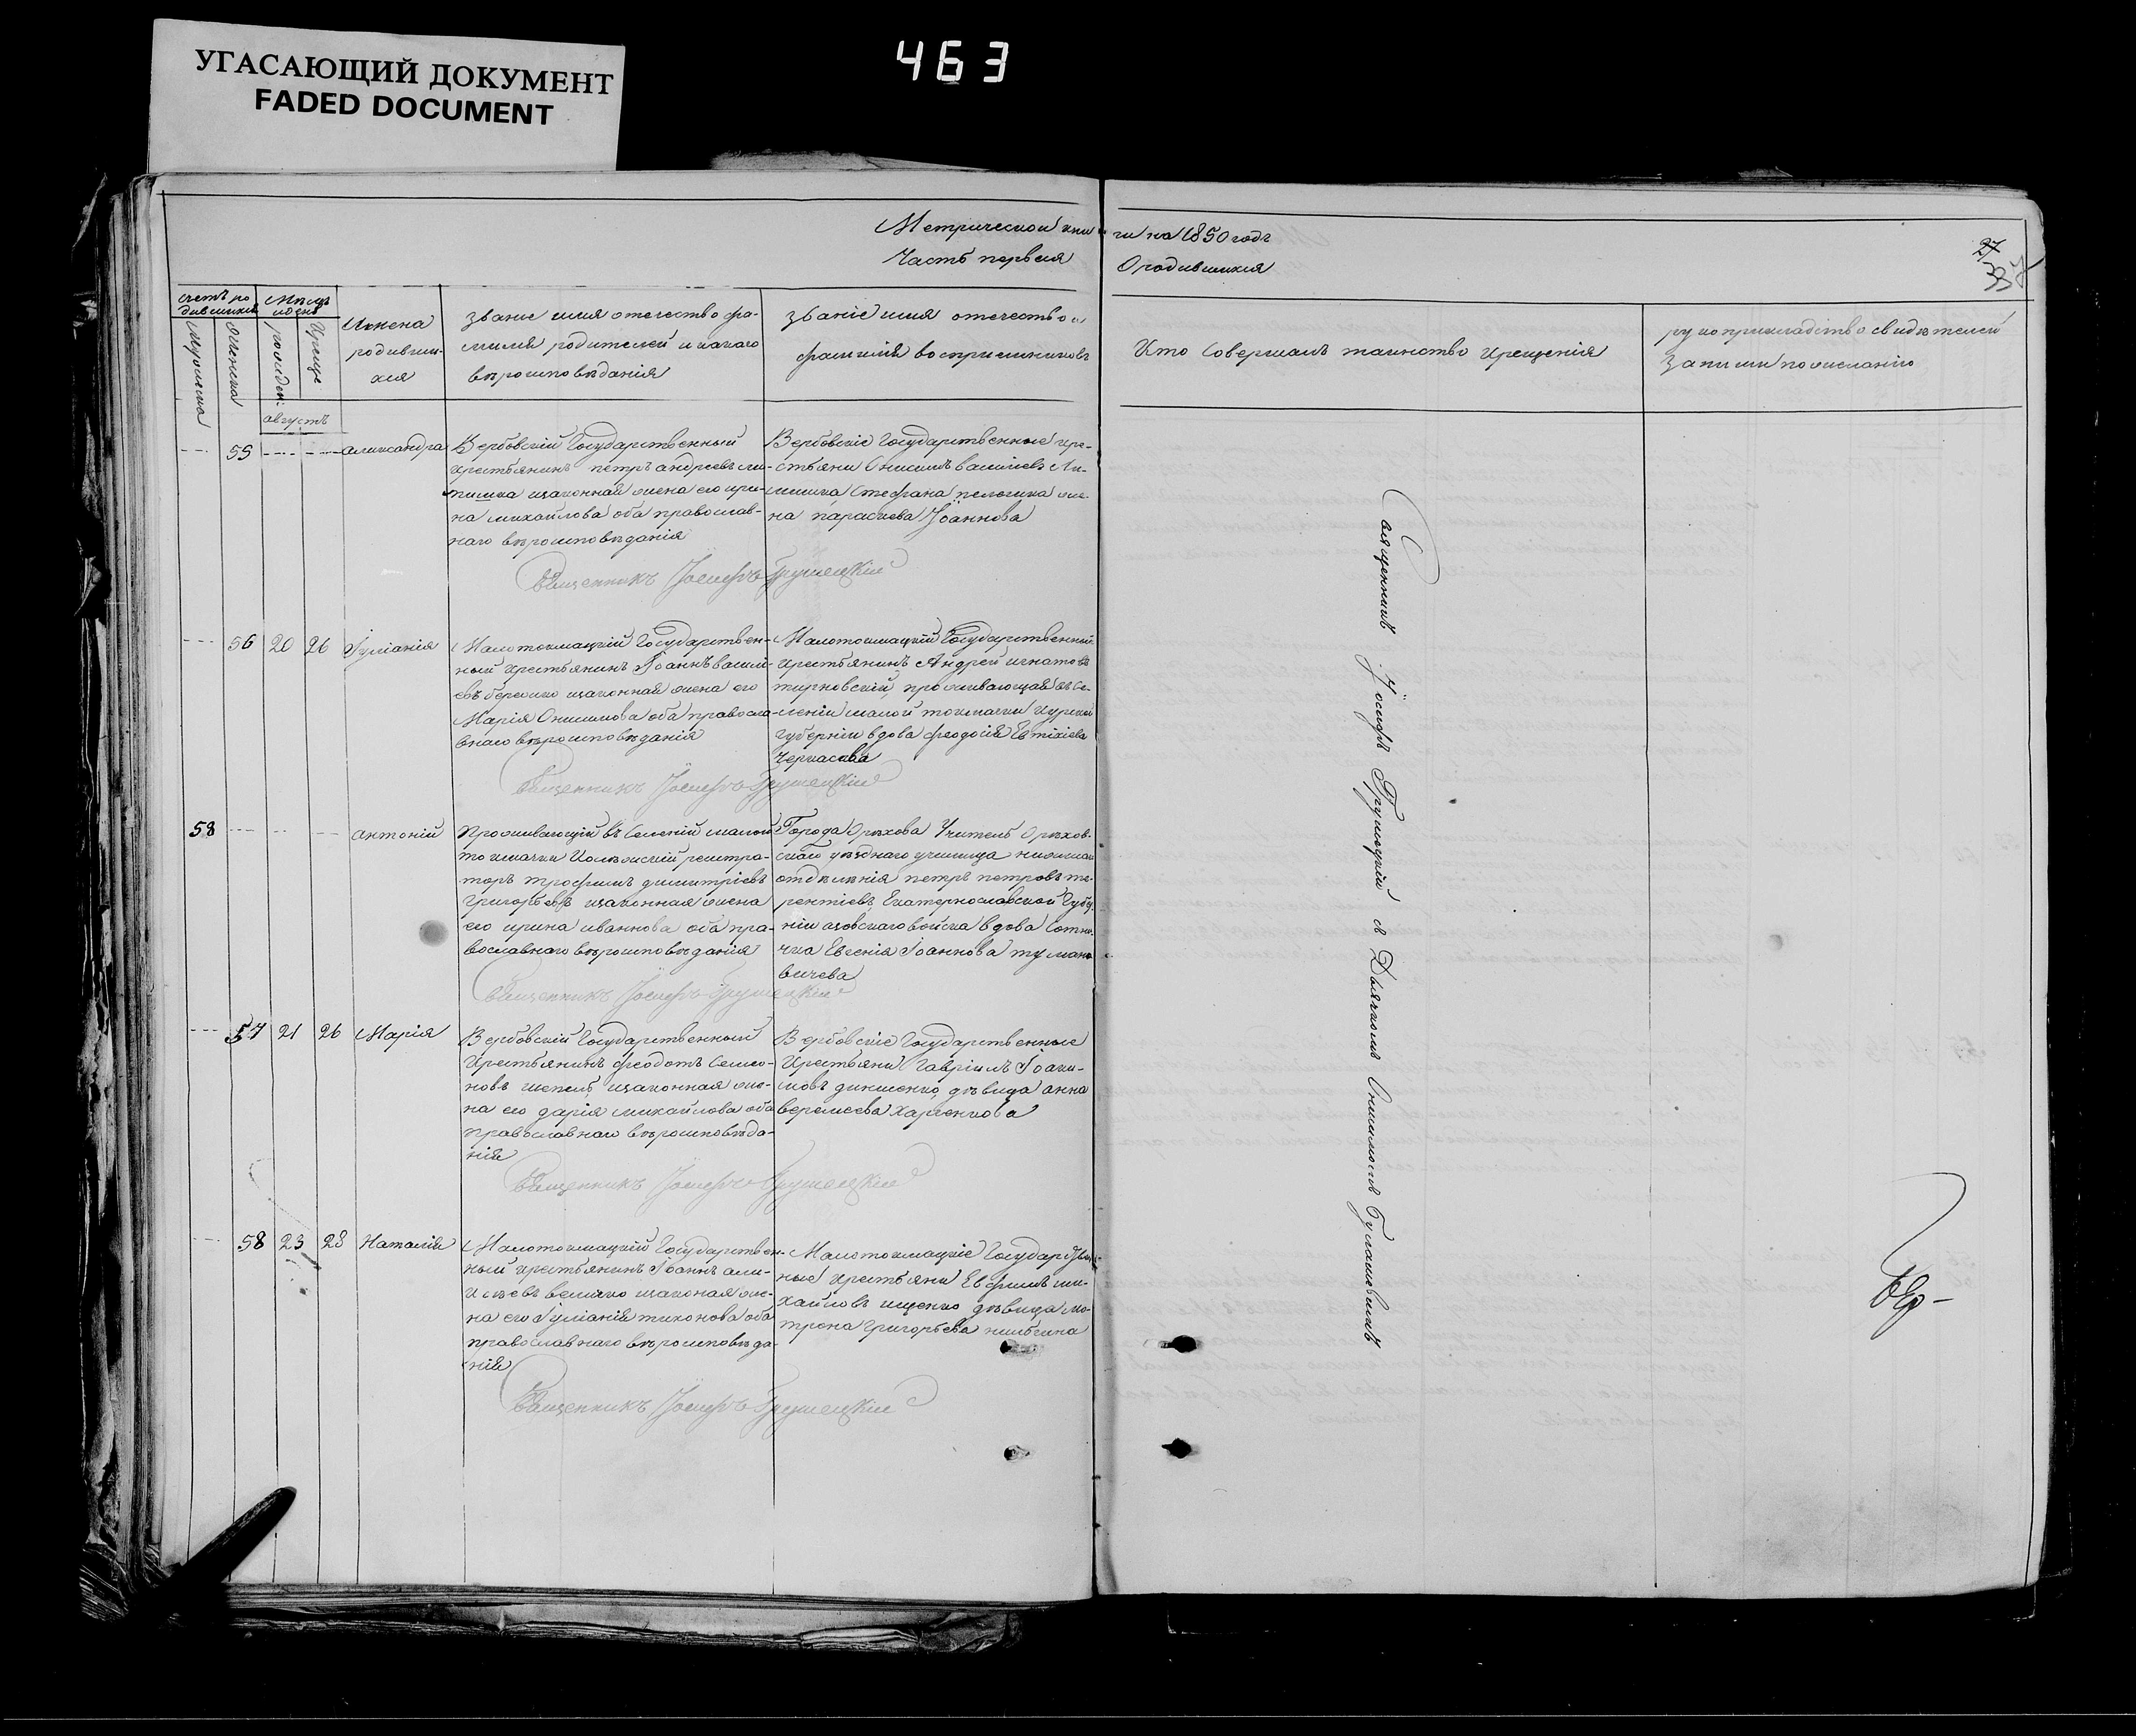 УГАСАЮЩИЙ ДОКУМЕНТ
FADED DOCUMENT
463
Метрической книги на 1850 годъ
Часть первая О родившихся
27
счетъ родившихся
Мужеска
Женска
Месяцъ и день
рожден:
Крещ:
Имена
родивших-
хся
Званіе имя отечество фа-
милія родителей и какаго
вѣроисповѣданія
Званіе имя отечество и
фамилія воспріемниковъ
Кто Совершалъ таинство Крещенія
рукоприкладство свидѣтелей
записи по желанію
августъ
55
александра
Вербовскій Государственный
крестьянинъ петръ андреевъ ли-
пишка изаконная жена его ири-
на михайлова оба православ-
наго вѣроисповѣданія
Вербовскіе Государственные кре-
стьяни Онисимъ васильевъ
Стефана жe-
на параскева Іоаннова
Священникъ Іосифъ Грушецкій
56 20 26 Іуліанія
Малотокмацкій Государствен-
ный крестьянинъ Іоаннъ васильи-
евъ бережко изаконная жена его
Марія Онисимова оба правосла-
внаго вѣроисповѣданія
Малотокмацкій Государственный
крестьянинъ Андрей игнатовъ
тирновскій, проживающая въ се-
леніи малой токмачки Курской
губерніи вдова феодосія Евтихіева
Черкасова
Священникъ Іосифъ Грушецкій
58
антоній
Проживающій въ Селеніи малой
токмачки Колежскій регистра-
торъ трофимъ димитріевъ
Григорьевъ изаконная жена
его ирина иваннова оба пра-
вославнаго вѣроисповѣданія
Города Орѣхова Учитель Орѣхов-
скаго уѣзднаго училища нижшаго
отдѣленія петръ петровъ те-
рентіевъ, Екатеринославской Губер-
ніи азовскаго войска вдова Сотни-
чка Евгенія Іоаннова тумано-
вичева
Священникъ Іосифъ Грушецкій
57 21 26 Марія
Вербовскій Государственный
Крестьянинъ феодотъ Семио-
новъ шепель, изаконная же-
на его дарія михайлова оба
православнаго вѣроисповѣда-
нія
Вербовскіе Государственные
Крестьяни Гавріилъ Іоаки-
мовъ дикшенко, дѣвица анна
веремеева Харченкова
Священникъ Іосифъ Грушецкій
58 23 28 Наталія
Малотокмацкій Государствен-
ный крестьянинъ Іоаннъ але-
ксѣевъ велико изаконая же-
на его Іуліанія тихонова оба
православнаго вѣроисповѣда-
нія
Малотокмацкіе Государствен-
ные крестьяни Евфимъ ми-
хайловъ ищенко дѣвица ма-
трона Григорьева
Священникъ Іосифъ Грушецкій
Священникъ Іосифъ Грушецкій съ Дьячкомъ Онисимомъ Булашевымъ